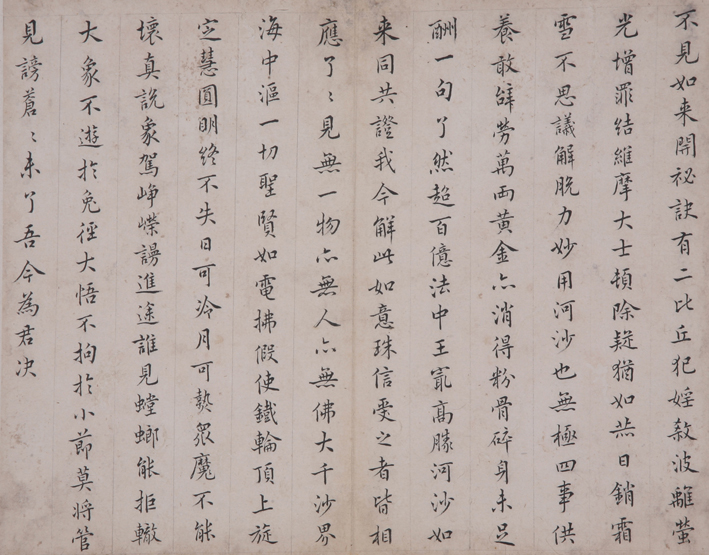 不見如来開祕訣有二比丘犯婬殺波離螢
光增罪結維摩大士頓除疑猶如共日銷霜
雪不思議解脱力妙用河沙也無極四事供
養敢辭勞萬両黃金亦消得粉骨碎身未足
酬一句了然超百億法中王寂高勝河沙如
来同共證我今解此如意珠信受之者皆相
應了〻見無一物亦無人亦無佛大千沙界
海中漚一切聖賢如電拂假使鐵輪頂上旋
定慧圓明終不失日可冷月可熱衆魔不能
壞真説象駕崢嶸謾進途誰見螳螂能拒轍
大象不遊於兔徑大悟不拘於小節莫將管
見謗蒼〻未了吾今為君決